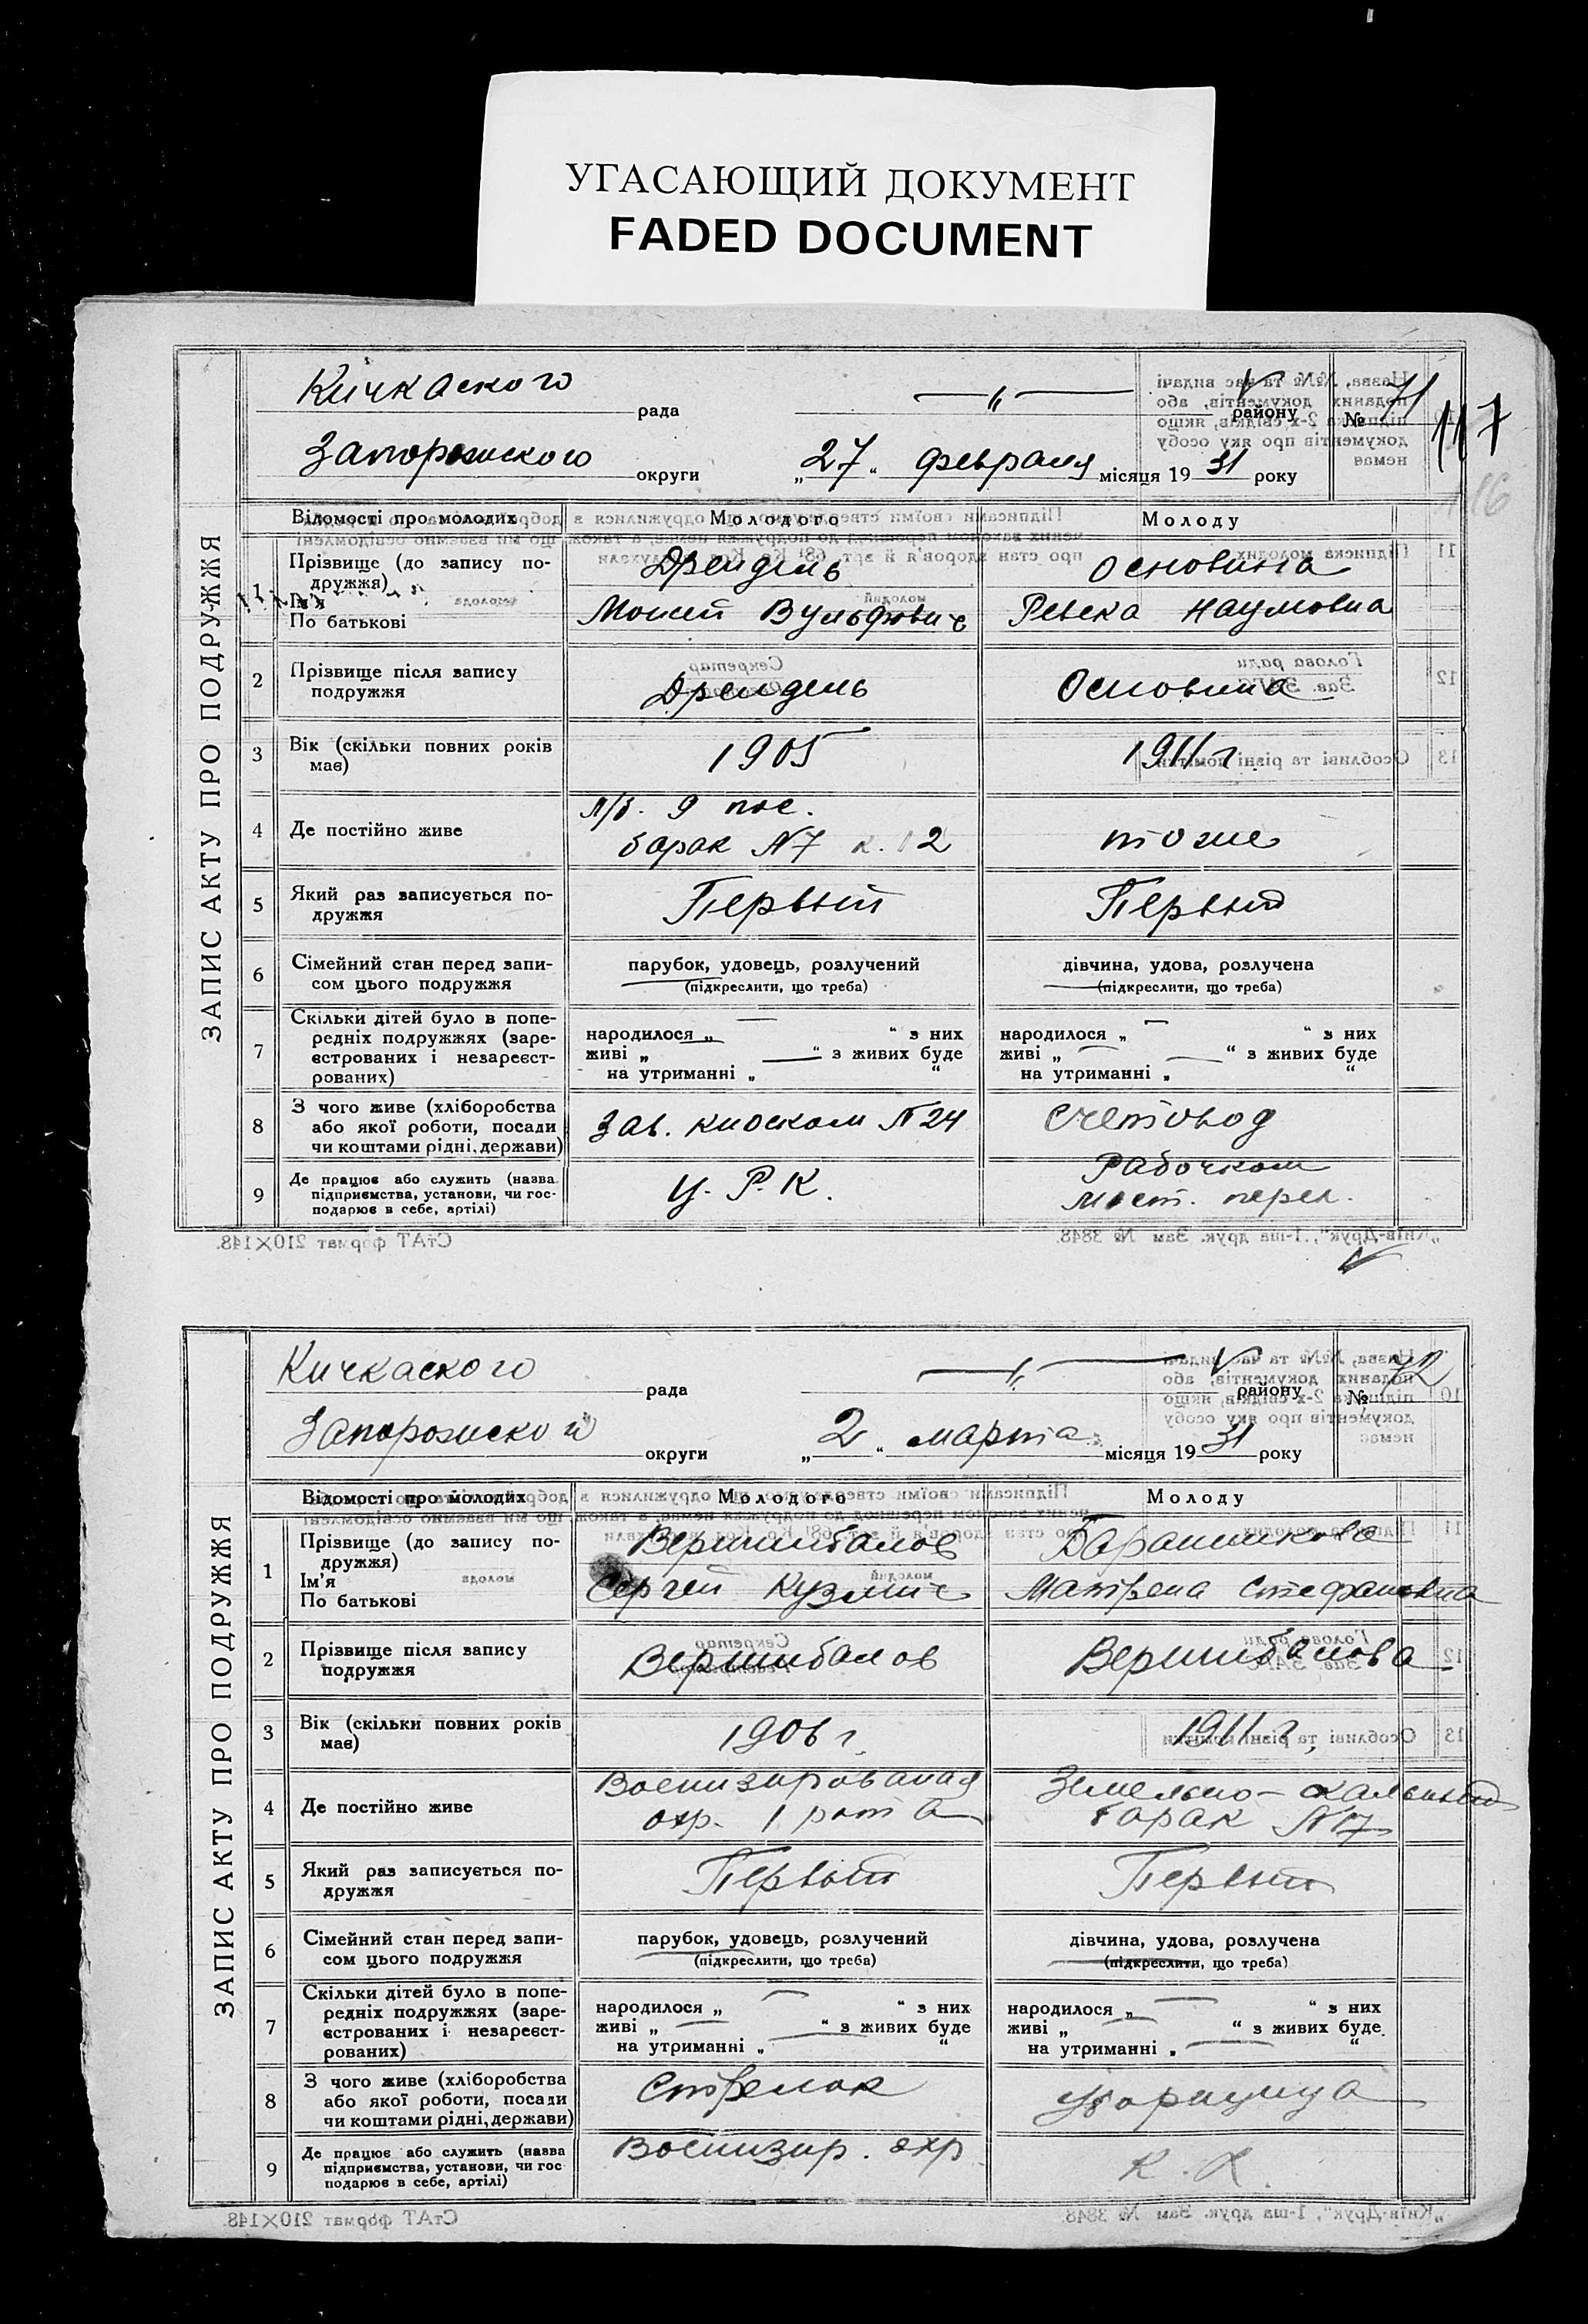 УГАСАЮЩИЙ ДОКУМЕНТ
FADED DOCUMENT
ЗАПИС АКТУ ПРО ПОДРУЖЖЯ
Кичкаского рада
району
№ 71
117
116
Запорожского округи
„27“ февраля місяця 1931 року
Відомості про молодих Молодого Молоду
1 Прізвище (до запису по-
дружжя)
Ім'я
По батькові
Дрендель Основина
Мосей Вульфович Ревека Наумовна
2 Прізвище після запису
подружжя
Дрендель Основина
3 Вік (скільки повних років
має)
1905 1911 г
4 Де постійно живе
л/б. 9 пос.
барак №7 к. 2 тоже
5 Який раз записується по-
дружжя
Первый Первый
6 Сімейний стан перед запи-
сом цього подружжя
парубок, удовець, розлучений дівчина, удова, розлучена
(підкреслити, що треба) (підкреслити, що треба)
7 Скільки дітей було в попе-
редніх подружжях (заре-
єстрованих і незареєст-
рованих)
народилося „ “ з них народилося „ “ з них
живі „ “ з живих буде живі „ “ з живих буде
на утриманні „ “ на утриманні „ “
8 З чого живе (хліборобства
або якої роботи, посади
чи коштами рідні, держави)
Зав. киоском №24 Счетовод
9 Де працює або служить (назва
підприємства, установи, чи гос-
подарює в себе, артілі)
Ц. Р. К. Рабочком
мост. перех.
СтАТ формат 210×148.
„Київ-Друк“, 1-ша друк. Зам № 3848.
ЗАПИС АКТУ ПРО ПОДРУЖЖЯ
Кичкаского рада
району
№ 72
Запорожского округи
„2“ марта місяця 1931 року
Відомості про молодих Молодого Молоду
1 Прізвище (до запису по-
дружжя)
Ім'я
По батькові
Вершибалов Баранникова
Сергей Кузмич Матрена Стефановна
2 Прізвище після запису
подружжя
Вершибалов Вершибалова
3 Вік (скільки повних років
має)
1906 г. 1911 г.
4 Де постійно живе
Военизированая Земельно-скальный
охр. 1 рота барак №17
5 Який раз записується по-
дружжя
Первый Первый
6 Сімейний стан перед запи-
сом цього подружжя
парубок, удовець, розлучений дівчина, удова, розлучена
(підкреслити, що треба) (підкреслити, що треба)
7 Скільки дітей було в попе-
редніх подружжях (заре-
єстрованих і незареєст-
рованих)
народилося „ “ з них народилося „ “ з них
живі „ “ з живих буде живі „ “ з живих буде
на утриманні „ “ на утриманні „ “
8 З чого живе (хліборобства
або якої роботи, посади
чи коштами рідні, держави)
Стрелок Уборщица
9 Де працює або служить (назва
підприємства, установи, чи гос
подарює в себе, артілі)
Военизир. охр К. Х.
СтАТ формат 210×148.
„Київ-Друк“, 1-ша друк. Зам № 3848.